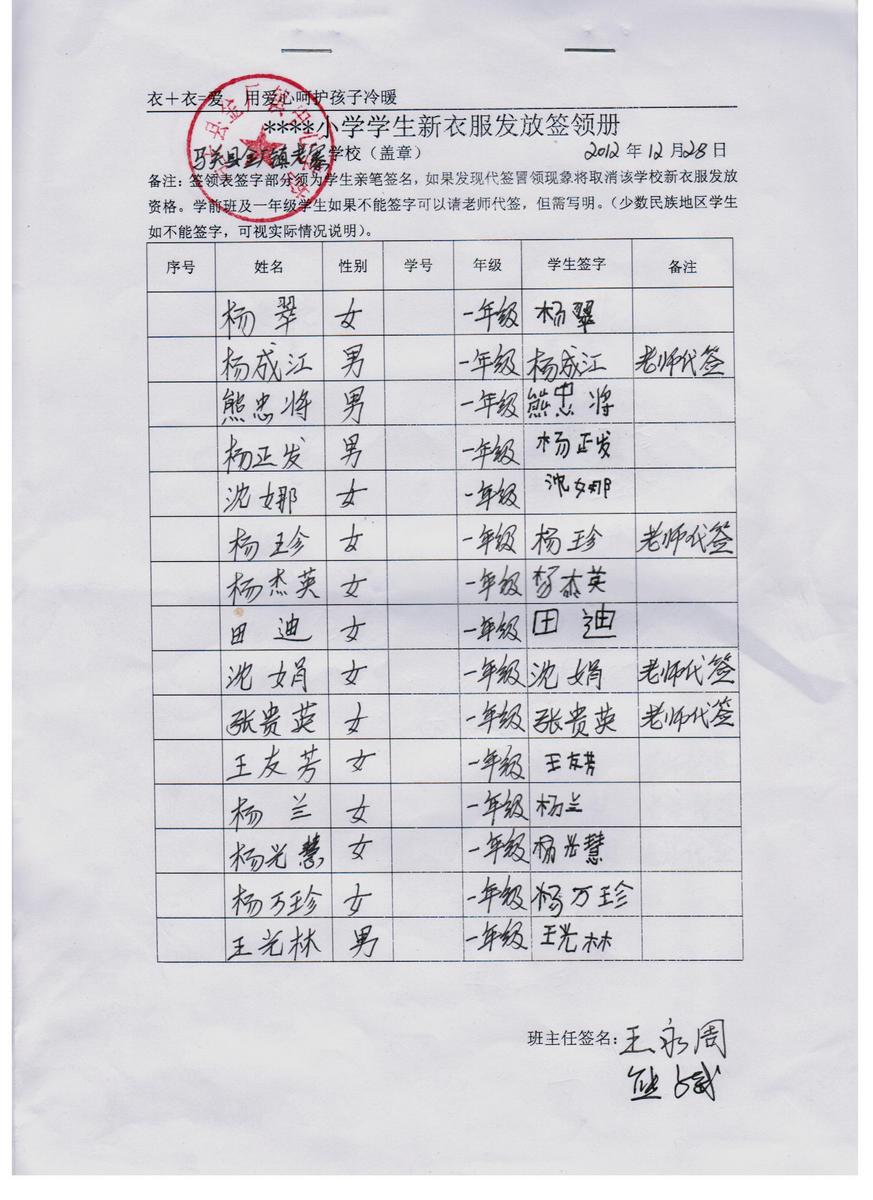 衣＋衣=爱　用爱心呵护孩子冷暖
****小学学生新衣服发放签领册
马关县金厂镇老寨学校（盖章） 2012 年 12 月 28 日
备注：签领表签字部分须为学生亲笔签名，如果发现代签冒领现象将取消该学校新衣服发放
资格。学前班及一年级学生如果不能签字可以请老师代签，但需写明。（少数民族地区学生
如不能签字，可视实际情况说明）。
序号 姓名 性别 学号 年级 学生签字 备注
杨翠 女 一年级 杨翠
杨成江 男 一年级 杨成江 老师代签
熊忠将 男 一年级 熊忠将
杨正发 男 一年级 杨正发
沈女娜 女 一年级 沈女娜
杨珍 女 一年级 杨珍 老师代签
杨杰英 女 一年级 杨杰英
田迪 女 一年级 田迪
沈娟 女 一年级 沈娟 老师代签
张贵英 女 一年级 张贵英 老师代签
王友芳 女 一年级 王友芳
杨兰 女 一年级 杨兰
杨光慧 女 一年级 杨光慧
杨万珍 女 一年级 杨万珍
王光林 男 一年级 王光林
班主任签名：王永周